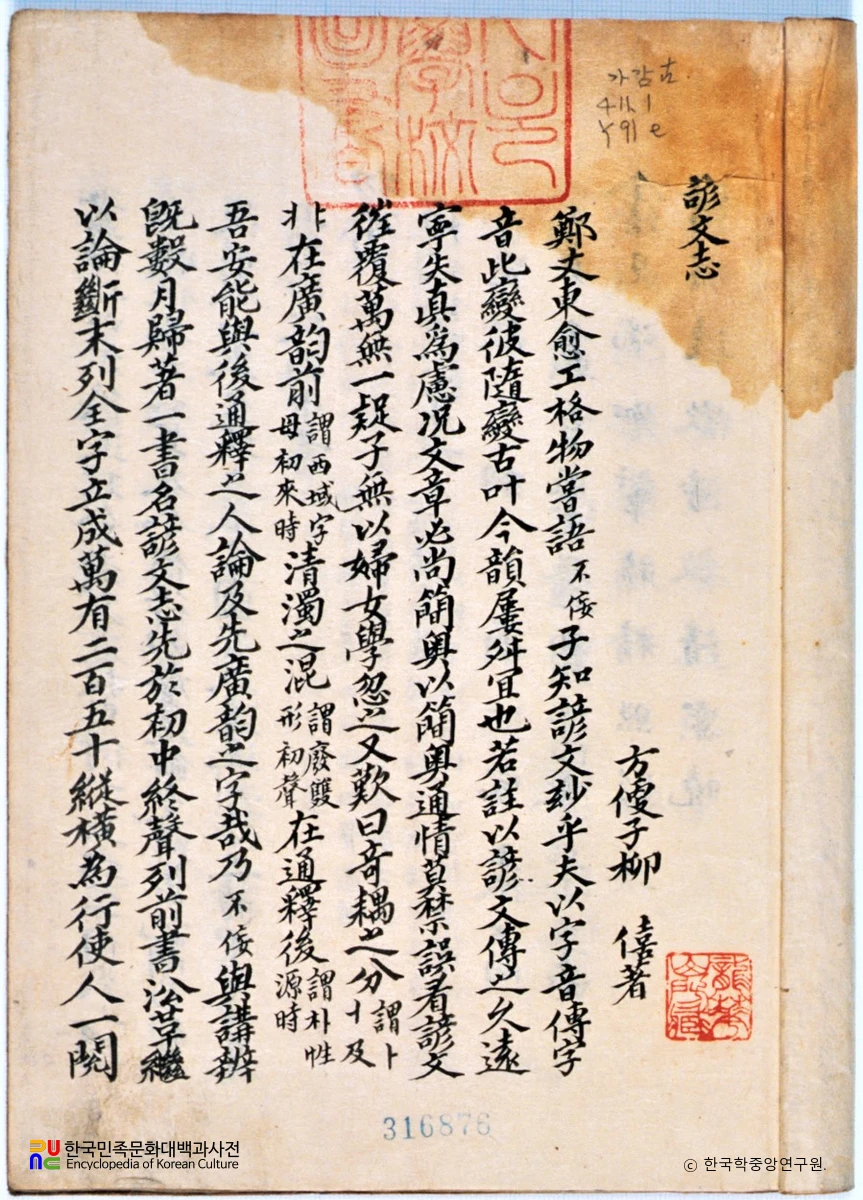 諺文志
方便子柳 僖著
鄭丈東愈工格物嘗語不侫子知諺文玅乎夫以字音傳字
音此變彼隨變古叶今韻屢舛宜也若註以諺文傳之久遠
寧失真爲慮况文章必尚簡奥以簡奥通情莫禁誤看諺文
徃覆萬無一疑子無以婦女學忽之又歎曰奇耦之分謂ㅏㅓ及
ㅑㅕ在廣韵前謂西域字母初來時清濁之混謂廢雙形初聲在通釋後謂朴性源時
吾安能與後通釋之人論及先廣韵之字哉乃不侫與講辨
旣數月歸著一書名諺文志先於初中終聲列前書沿革繼
以論斷末列全字立成萬有二百五十縱橫為行使人一閱
316876
한국민족문화대백과사전
Encyclopedia of Korean Culture
ⓒ 한국학중앙연구원.